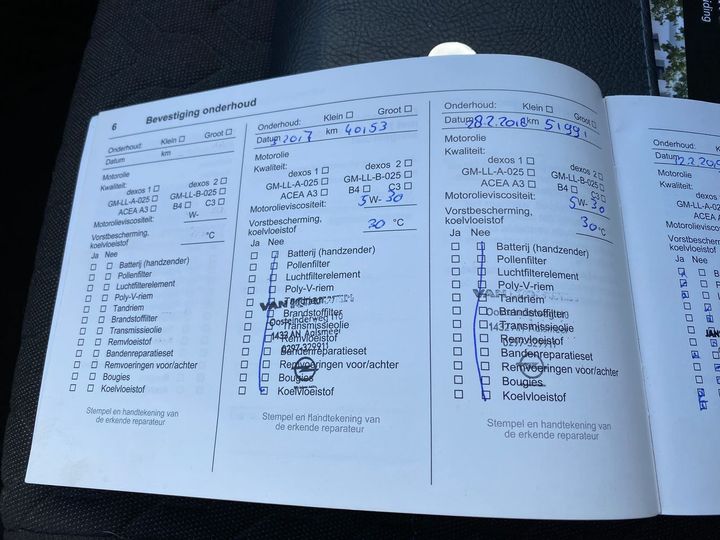 6 Bevestiging onderhoud
Onderhoud: Klein ☐ Groot ☐
Datum km
Motorolie
Kwaliteit:
dexos 1 ☐ dexos 2 ☐
GM-LL-A-025 ☐ GM-LL-B-025 ☐
ACEA A3 ☐ B4 ☐ C3 ☐
Motorolieviscositeit: W-
Vorstbescherming,
koelvloeistof °C
Ja Nee
☐ ☐ Batterij (handzender)
☐ ☐ Pollenfilter
☐ ☐ Luchtfilterelement
☐ ☐ Poly-V-riem
☐ ☐ Tandriem
☐ ☐ Brandstoffilter
☐ ☐ Transmissieolie
☐ ☐ Remvloeistof
☐ ☐ Bandenreparatieset
☐ ☐ Remvoeringen voor/achter
☐ ☐ Bougies
☐ ☐ Koelvloeistof
Stempel en handtekening van
de erkende reparateur
Onderhoud: Klein ☐ Groot ☐
Datum 2017 km 40153
Motorolie
Kwaliteit:
dexos 1 ☐ dexos 2 ☐
GM-LL-A-025 ☐ GM-LL-B-025 ☐
ACEA A3 ☐ B4 ☐ C3 ☐
Motorolieviscositeit: 5 W- 30
Vorstbescherming,
koelvloeistof 30 °C
Ja Nee
☐ ☐ Batterij (handzender)
☐ ☐ Pollenfilter
☐ ☐ Luchtfilterelement
☐ ☐ Poly-V-riem
☐ ☐ Tandriem
VAN
☐ ☐ Brandstoffilter
Oosteinderweg 110
☐ ☐ Transmissieolie
1432 AN Aalsmeer
☐ ☐ Remvloeistof
0297-329911
☐ ☐ Bandenreparatieset
☐ ☐ Remvoeringen voor/achter
☐ ☐ Bougies
☐ ☐ Koelvloeistof
Stempel en handtekening van
de erkende reparateur
Onderhoud: Klein ☐ Groot ☐
Datum 28.2.2018 km 51991
Motorolie
Kwaliteit:
dexos 1 ☐ dexos 2 ☐
GM-LL-A-025 ☐ GM-LL-B-025 ☐
ACEA A3 ☐ B4 ☐ C3 ☐
Motorolieviscositeit: 5 W- 30
Vorstbescherming,
koelvloeistof 30 °C
Ja Nee
☐ ☐ Batterij (handzender)
☐ ☐ Pollenfilter
☐ ☐ Luchtfilterelement
☐ ☐ Poly-V-riem
☐ ☐ Tandriem
VAN
☐ ☐ Brandstoffilter
☐ ☐ Transmissieolie
1432
☐ ☐ Remvloeistof
☐ ☐ Bandenreparatieset
☐ ☐ Remvoeringen voor/achter
☐ ☐ Bougies
☐ ☐ Koelvloeistof
Stempel en handtekening van
de erkende reparateur
Onderhoud:
Datum
Motorolie
Kwaliteit:
Ja Nee